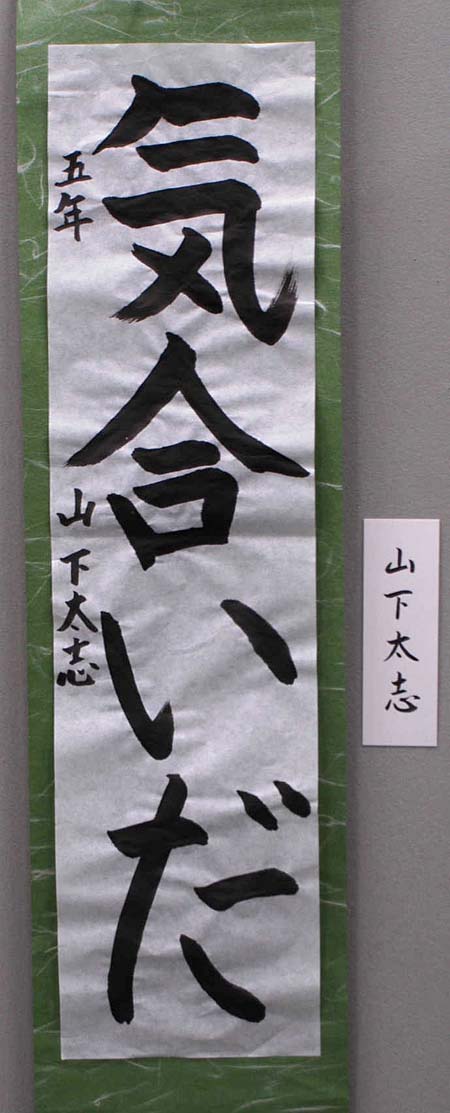 気合いだ
五年 山下太志
山下太志